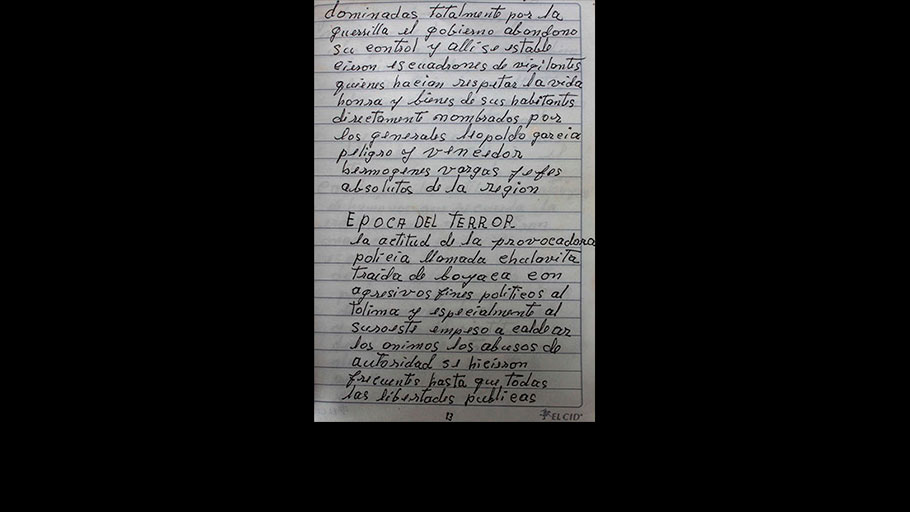 dominadas totalmente por la
guerrilla el gobierno abandono
su control y alli se estable
cieron escuadrones de vigilantes
quienes hacian respetar la vida
honra y bienes de sus habitantes
directamente nombrados por
los generales leopoldo garcia
peligro y vencedor
hermogenes vargas jefes
absolutos de la region
EPOCA DEL TERROR
la actitud de la provocadora
policia llamada chulavita
traida de boyaca con
agresivos fines politicos al
tolima y especialmente al
suroeste empeso a caldear
los animos los abusos de
autoridad se hicieron
frecuentes hasta que todas
las libertades publicas
13
EL CID